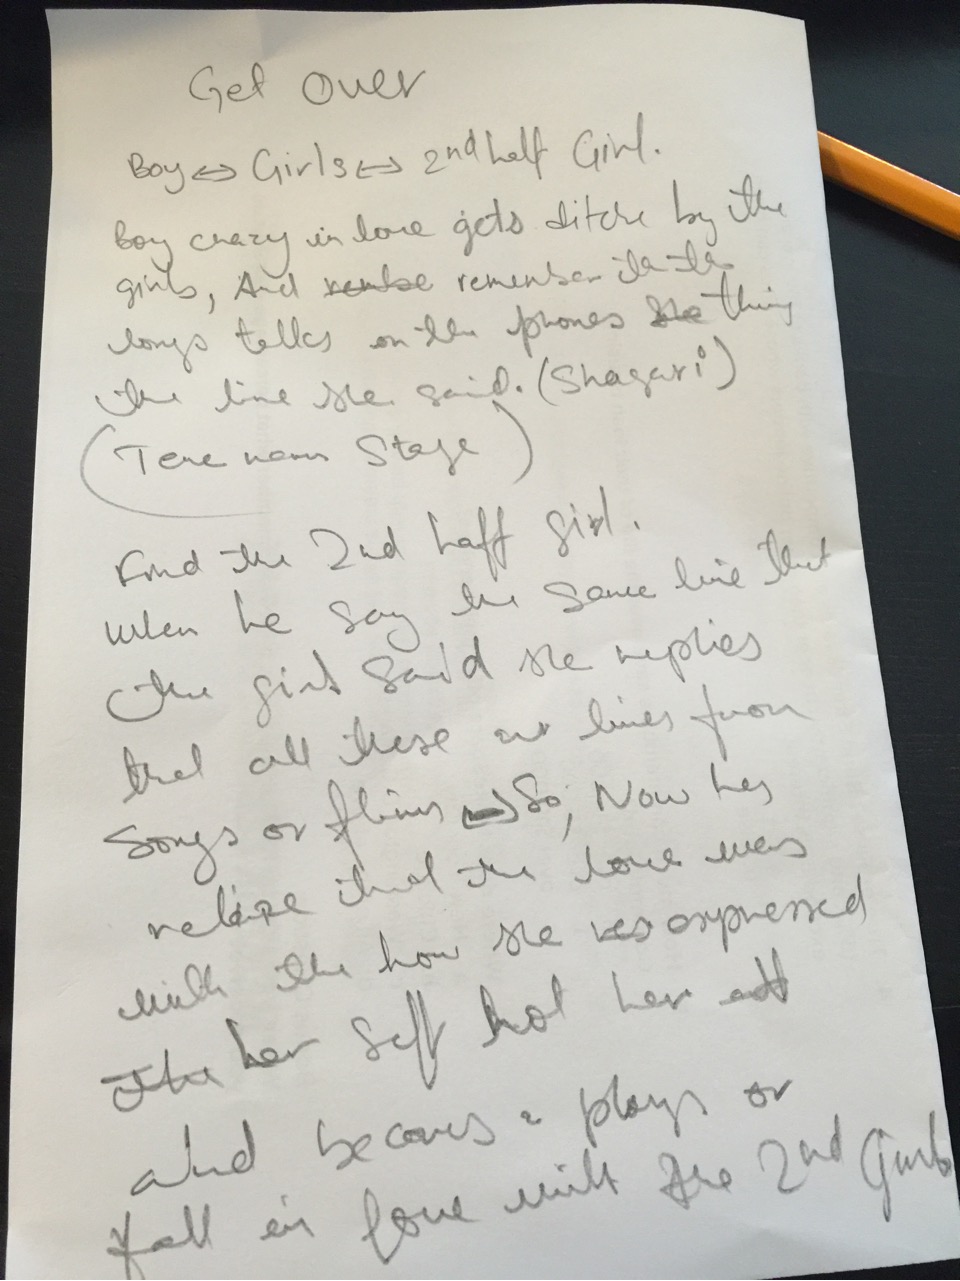 Get Over
Boy ⇔ Girls ⇔ 2nd half Girl.
Boy crazy in love gets ditche by the
girls, And remember the
longs talks on the phones thing
the line she said. (Shayari)
(Tere naam Stage)
Find the 2nd haff girl.
when he say the same line that
the girl said she replies
that all these are lines from
Songs or flims So, Now hes
relaize that the love was
with the how she expressed
her self not her
And becoms a plays or
fall in love with the 2nd Girls